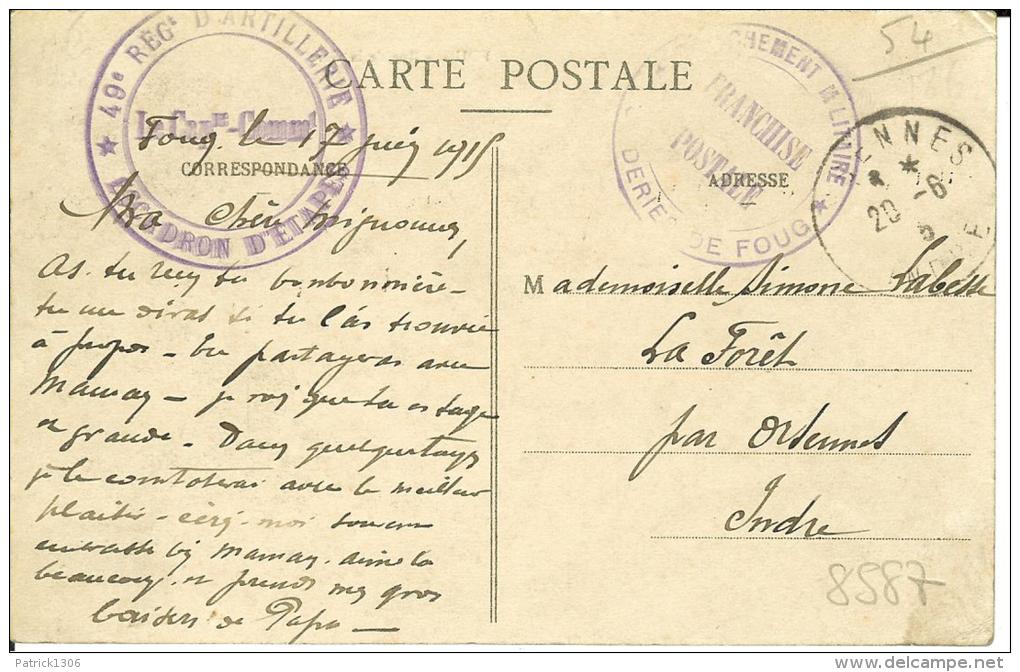 54
CARTE POSTALE
49e REGt D'ARTILLERIE
Le Capne-Commt
ESCADRON D'ETAPES
CHEMENT MILITAIRE
FRANCHISE
POSTALE
DERIE DE FOUG
ENNES
20 -6
INDRE
Foug. le 17 juin 1915
CORRESPONDANCE
ADRESSE
Ma Chère mignonne,
As-tu reçu ta bonbonnière -
tu me diras si tu l'as trouvée
à propos - tu partageras avec
Maman - je vois que tu es sage
et grande - Dans quelques jours
je le constaterai avec le meilleur
plaisir - écris-moi souvent
embrasse bien Maman. aime la
beaucoup. et prends mes gros
baisers de Papa -
Mademoiselle Simone Labesse
La Forêt
par Orsennes
Indre
8587
Patrick1306
delcampe.net